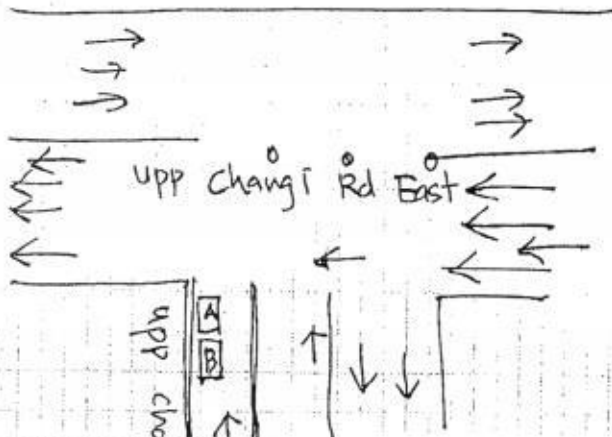 upp Changi Rd East
A
B
upp cha